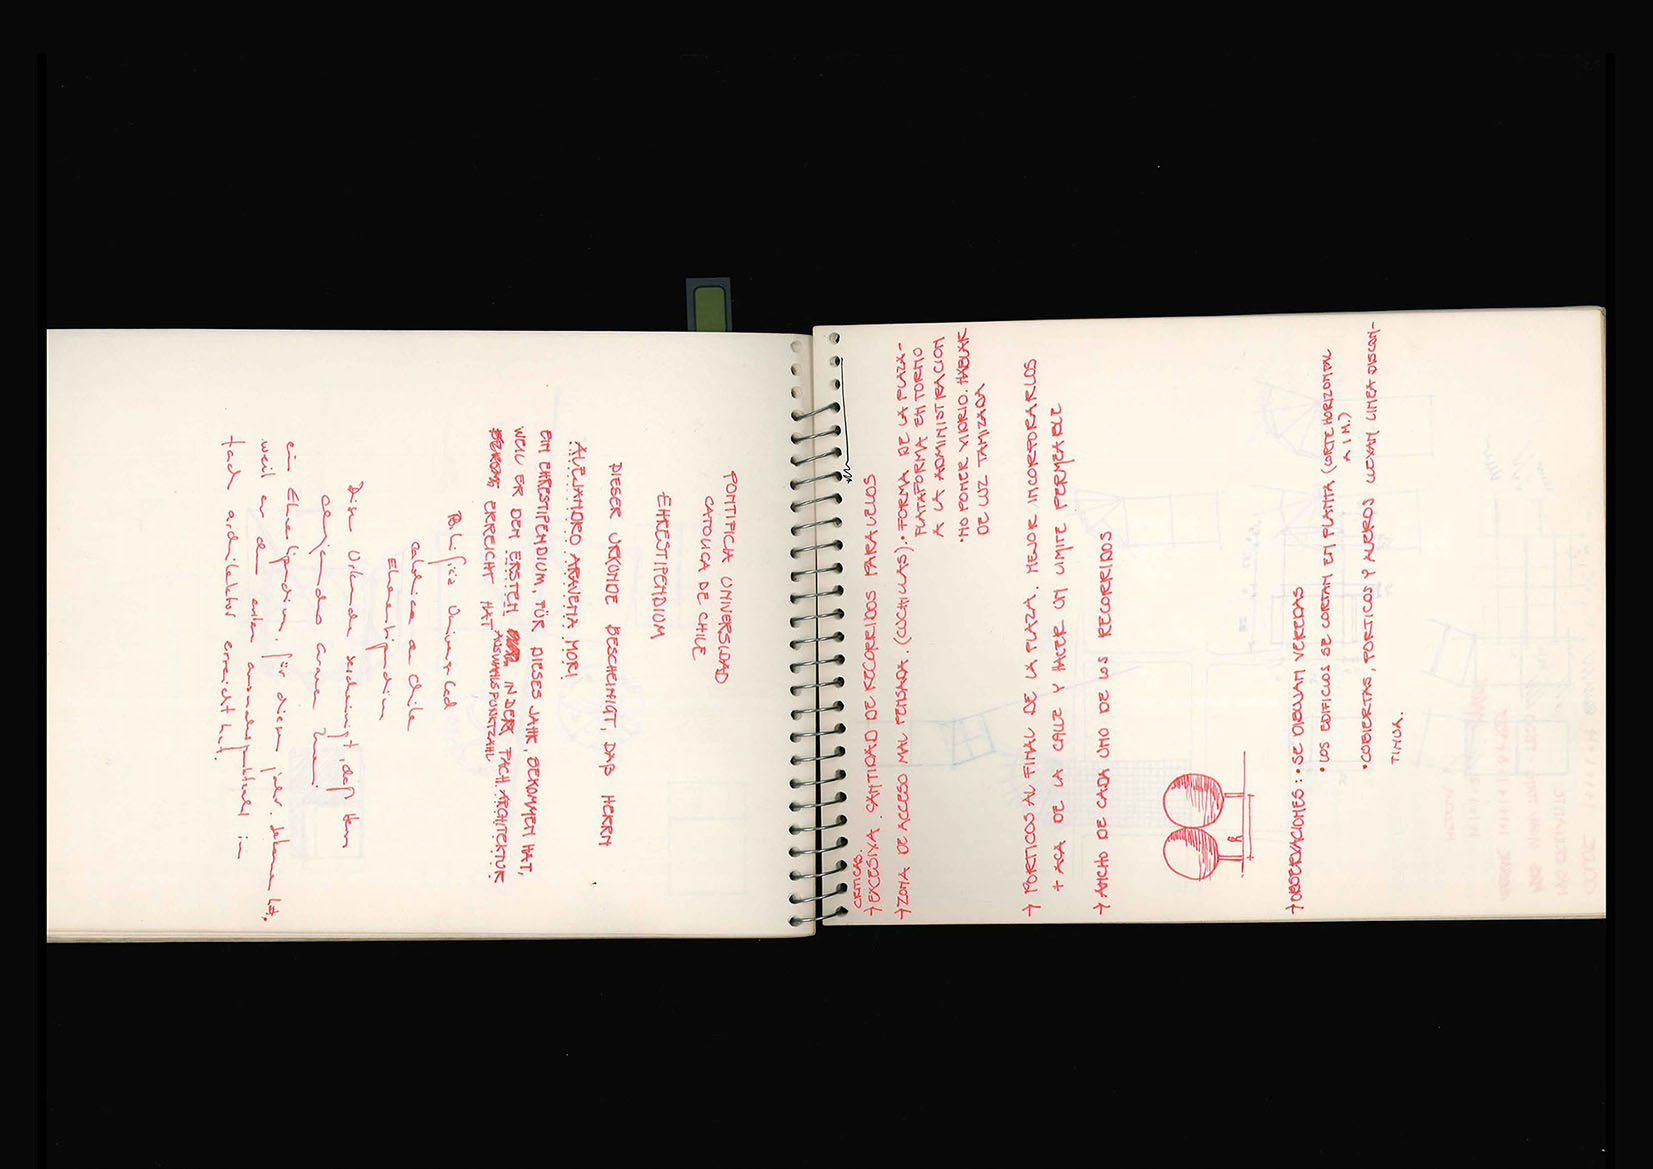 PONTIFICIA UNIVERSIDAD
CATOLICA DE CHILE
EHRESTIPENDIUM
DIESER URKUNDE BESCHEINIGT, DAß HERRN
ALEJANDRO ARAVENA MORI
EIN EHRESTIPENDIUM, FÜR DIESES JAHR, BEKOMMEN HAT,
WEIL ER DEN ERSTEN IN DER FACH ARCHITEKTUR
AUSWAHLSPUNKTZAHL
ERREICHT HAT
Pontificia Universidad
catolica de chile
Ehrestipendium
Diese Urkunde bescheinigt, daß Herr
alejandro aravena mori
ein Ehrestipendium, für dieses jahr, bekommen hat,
weil er den ersten auswahlspunktzahl in
fach architektur erreicht hat.
CRITICAS.
→ EXCESIVA CANTIDAD DE RECORRIDOS PARALELOS
→ ZONA DE ACCESO MAL PENSADA. (CUCHILLAS). • FORMA DE LA PLAZA-
PLATAFORMA EN TORNO
A LA ADMINISTRACION
• NO PONER VIDRIO. HABLAR
DE LUZ TAMIZADA
→ PORTICOS AL FINAL DE LA PLAZA. MEJOR INCORPORARLOS
+ ACA DE LA CALLE Y HACER UN LIMITE PERMEABLE
→ ANCHO DE CADA UNO DE LOS RECORRIDOS
→ OBSERVACIONES: • SE DIBUJAN VEREDAS
• LOS EDIFICIOS SE CORTAN EN PLANTA (CORTE HORIZONTAL
A 1 M.)
• COBIERTAS, PORTICOS Y ALEROS LLEVAN LINEA DISCON-
TINUA.